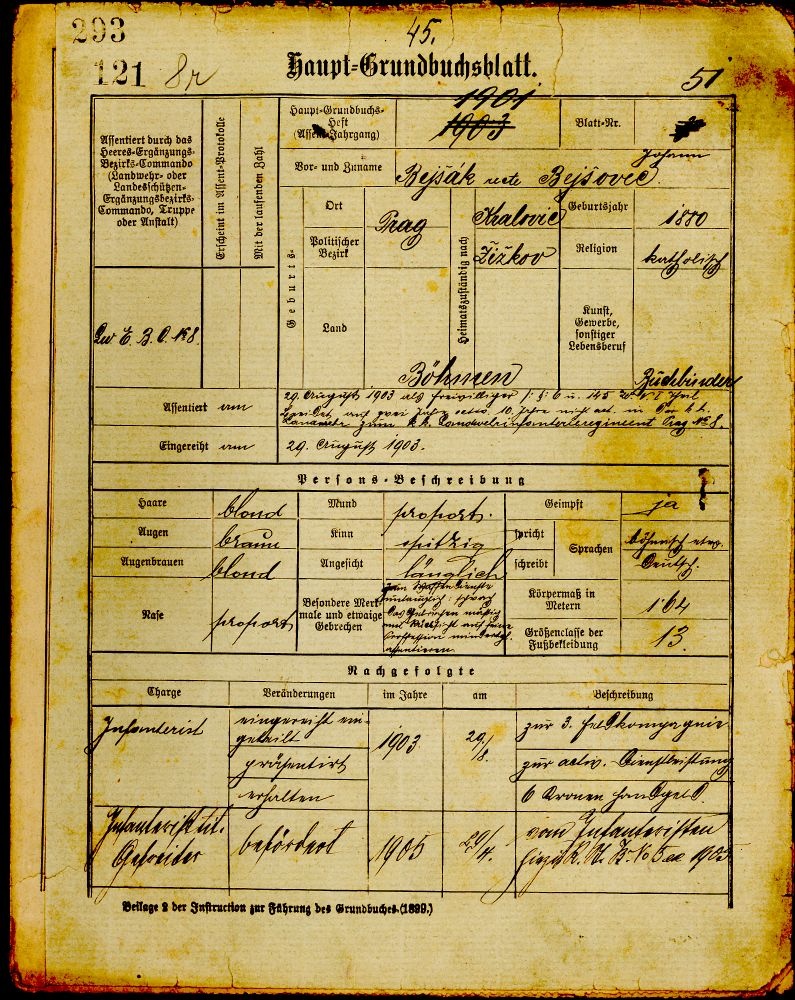 293
45.
121 8r
Haupt-Grundbuchsblatt.
51
Assentiert durch das
Heeres-Ergänzungs-
Bezirks-Commando
(Landwehr- oder
Landesschützen-
Ergänzungsbezirks-
Commando, Truppe
oder Anstalt)
Erscheint im Assent-Protokolle
Mit der laufenden Zahl
Haupt-Grundbuchs-
Heft
(Assent-Jahrgang)
1901
1903
Blatt-Nr.
Vor- und Zuname
Johann
Bejšák recte Bejšovec.
Geburts-
Ort
Prag
Heimatszuständig nach
Kralovic
Geburtsjahr
1880
Politischer
Bezirk
Žižkov
Religion
katholisch
Land
Böhmen
Kunst,
Gewerbe,
sonstiger
Lebensberuf
Buchbinder
Lw E. B. C. № 8.
Assentiert am
29. August 1903 als Freiwilliger §: § 6 u. 145 I Theil
auf zwei Jahre activ, 10 Jahre nicht act. in der k. k.
Landwehr zum k. k. Landwehrinfanterieregiment Prag № 8.
Eingereiht am
29. August 1903.
Persons-Beschreibung
Haare
blond
Mund
proport.
Geimpft
ja
Augen
braun
Kinn
spitzig
spricht
schreibt
Sprachen
böhmisch etw.
Deutsch.
Augenbrauen
blond
Angesicht
länglich
Nase
proport
Besondere Merk-
male und etwaige
Gebrechen
zum Waffendienste
untauglich: schwach
und Rücksicht auf seine
Profession mindertgl.
assentieren.
Körpermaß in
Metern
1·64
Größenclasse der
Fußbekleidung
13.
Nachgefolgte
Charge
Veränderungen
im Jahre
am
Beschreibung
Infanterist
eingereiht ein-
geteilt
1903
29/8.
zur 3. Feldkompagnie
präsentirt
zur activ. Dienstleistung
erhalten
6 Kronen Handgeld.
Infanterist tit.
Gefreiter
befördert
1905
29/4.
vom Infanteristen
1905
Beilage 2 der Instruction zur Führung des Grundbuches (1899.)